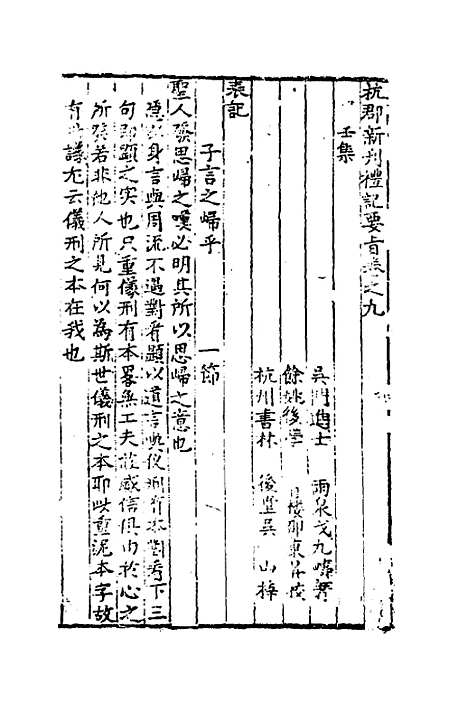 杭郡新刊禮記要旨卷之九
壬集
吳門進士 雨泉戈九疇
餘姚後學 東
杭州書林 後堂吳 山梓
表記
子言之歸乎 一節
聖人發思歸之嘆必明其所以思歸之意也
隱以身言與周流不遇對看顯以道言與儀刑有本對看下三
句即顯之实也只重儀刑有本畧無工夫莊威信俱由於心之
所發若非他人所見何以為斯世儀刑之本耶此重泥本字故
有此議尤云儀刑之本在我也